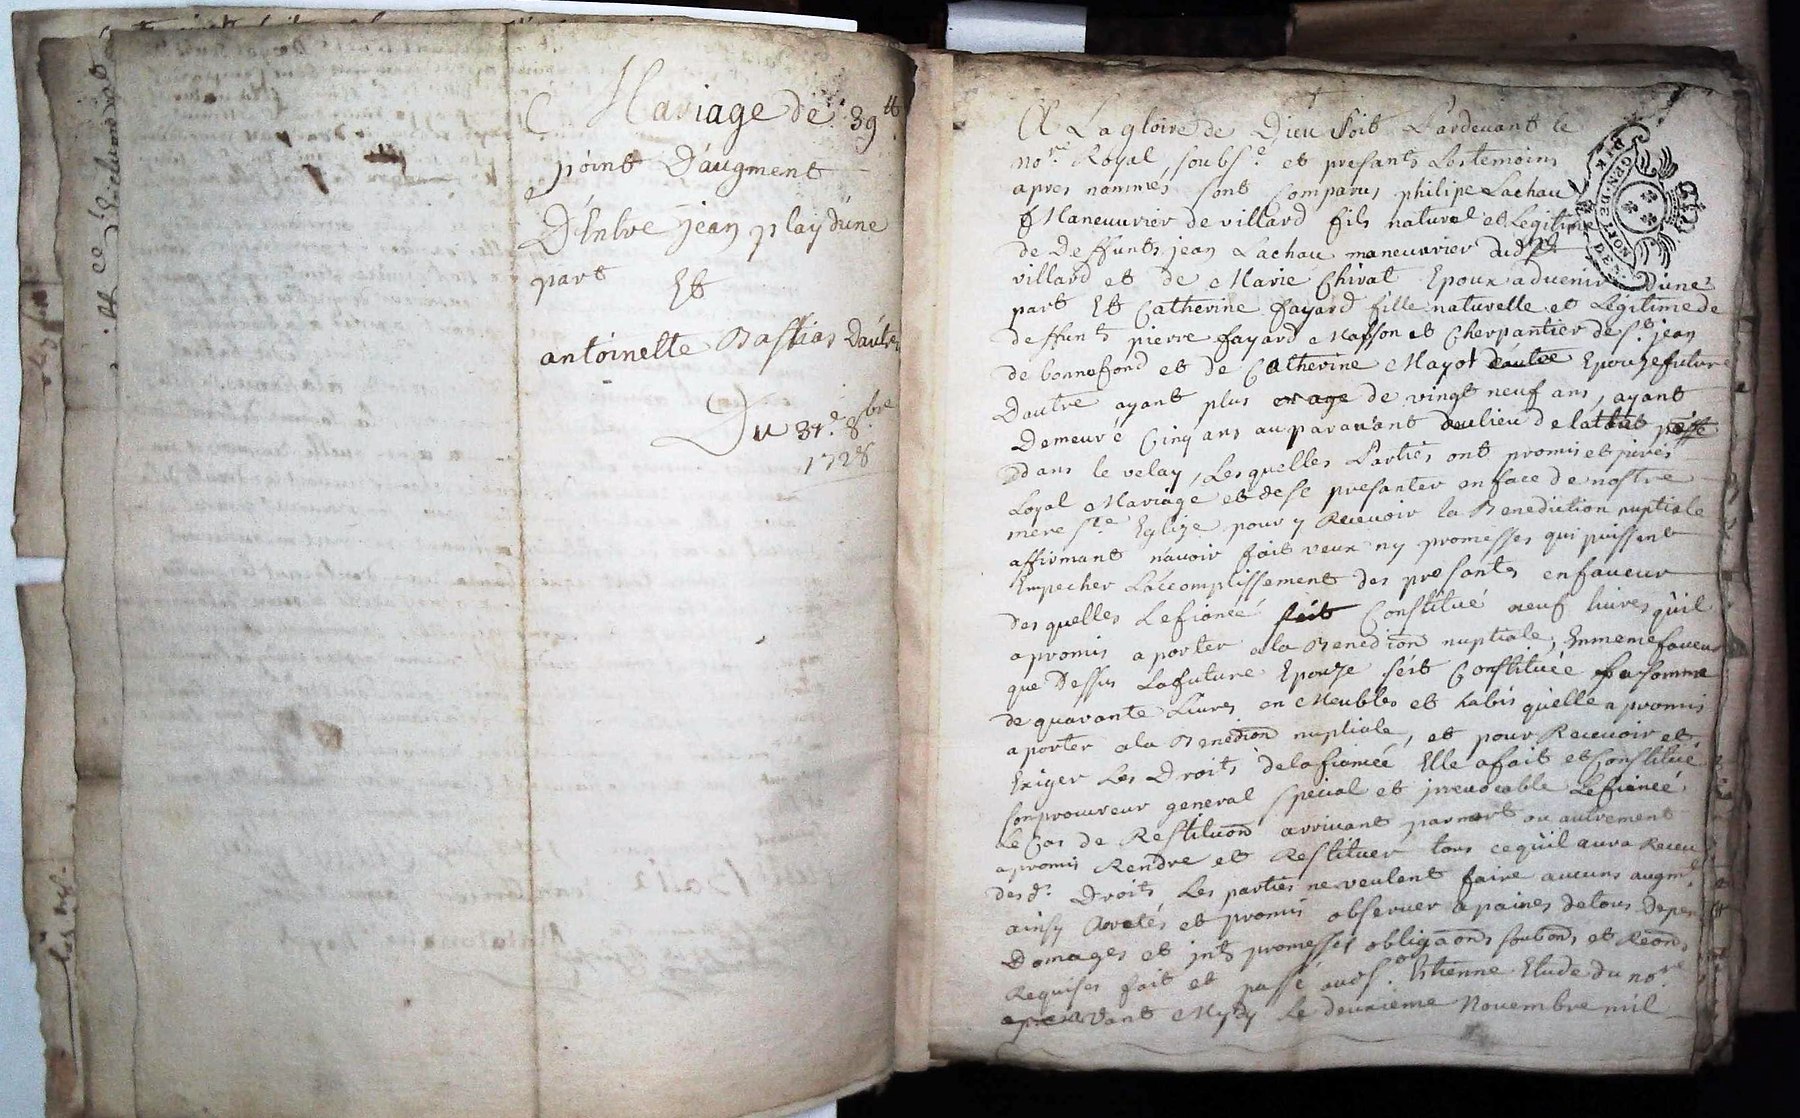 Mariage de 39 tt
point D'augment
D'Entre jean play d'une
part Et
antoinette Bastias D'autre
Du 31.e 8.bre
1728
A La gloire de Dieu soit Pardevant le
no.re Royal, soubs.é et presants Les temoins
apres nommés sont Comparus philipe Lachau
Maneuvrier de villard fils naturel et Legitime
de Deffunts jean Lachau maneuvrier dud
villard et de Marie Chirat Epoux advenir d'une
part Et Catherine fayard fille naturelle et Legitime de
deffunt pierre fayard Masson et Cherpantier de S.t jean
de bonnefond et de Catherine Mayot Epouze future
D'autre ayant plus de vingt neuf ans, ayant
Demeuré Cinq ans auparavant
dans le velay, Lesquelles Parties ont promis et jurés
Loyal Mariage et de se presanter en face de nostre
mere s.te Eglize pour y Recevoir la Benediction nuptiale
affirmant n'avoir fait veux ny promesses qui puissent
Empecher L'accomplissement des presantes en faveur
des quelles Le fiancé s'est Constitué neuf livres qu'il
a promis aporter a la Benedion nuptiale, En meme faveur
que Dessus La future Epouze s'est Constituée La somme
de quarante Livres en Meubles et habis qu'elle a promis
aporter a la Benedion nuptiale, et pour Recevoir et
Exiger Les Droits de la fiancée Elle a fait et Constitué
son procureur general special et irrevocable Le fiancé
Le Cas de Restituon arrivant par mort ou autrement
a promis Rendre et Restituer tous ce qu'il aura Receu
des d.s Droits, Les parties ne veulent faire aucuns augm.t
ainsy Aretés et promis observer a paines de tous Depens
Domages et jnts promesses obligaons soubons et Reons
Requises fait et passé aud S. Etienne Etude du no.re
avant Mydy Le deuxieme Novembre mil